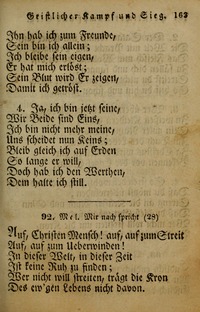 Geistlicher Kampf und Sieg. 163
Ihn hab ich zum Freunde,
Sein bin ich allein;
Ich bleibe sein eigen,
Er hat mich erlöst;
Sein Blut wird Er zeigen,
Damit ich getröst.
4. Ja, ich bin jetzt seine,
Wir Beide sind Eins,
Ich bin nicht mehr meine,
Uns scheidet nun Keins;
Bleib gleich ich auf Erden
So lange er will,
Doch hab ich den Werthen,
Dem halte ich still.
92. Mel. Mir nach spricht (28)
Auf, Christen Mensch! auf, auf zum Streit
Auf, auf zum Ueberwinden!
In dieser Welt, in dieser Zeit
Ist keine Ruh zu finden;
Wer nicht will streiten, trägt die Kron
Des ew'gen Lebens nicht davon.